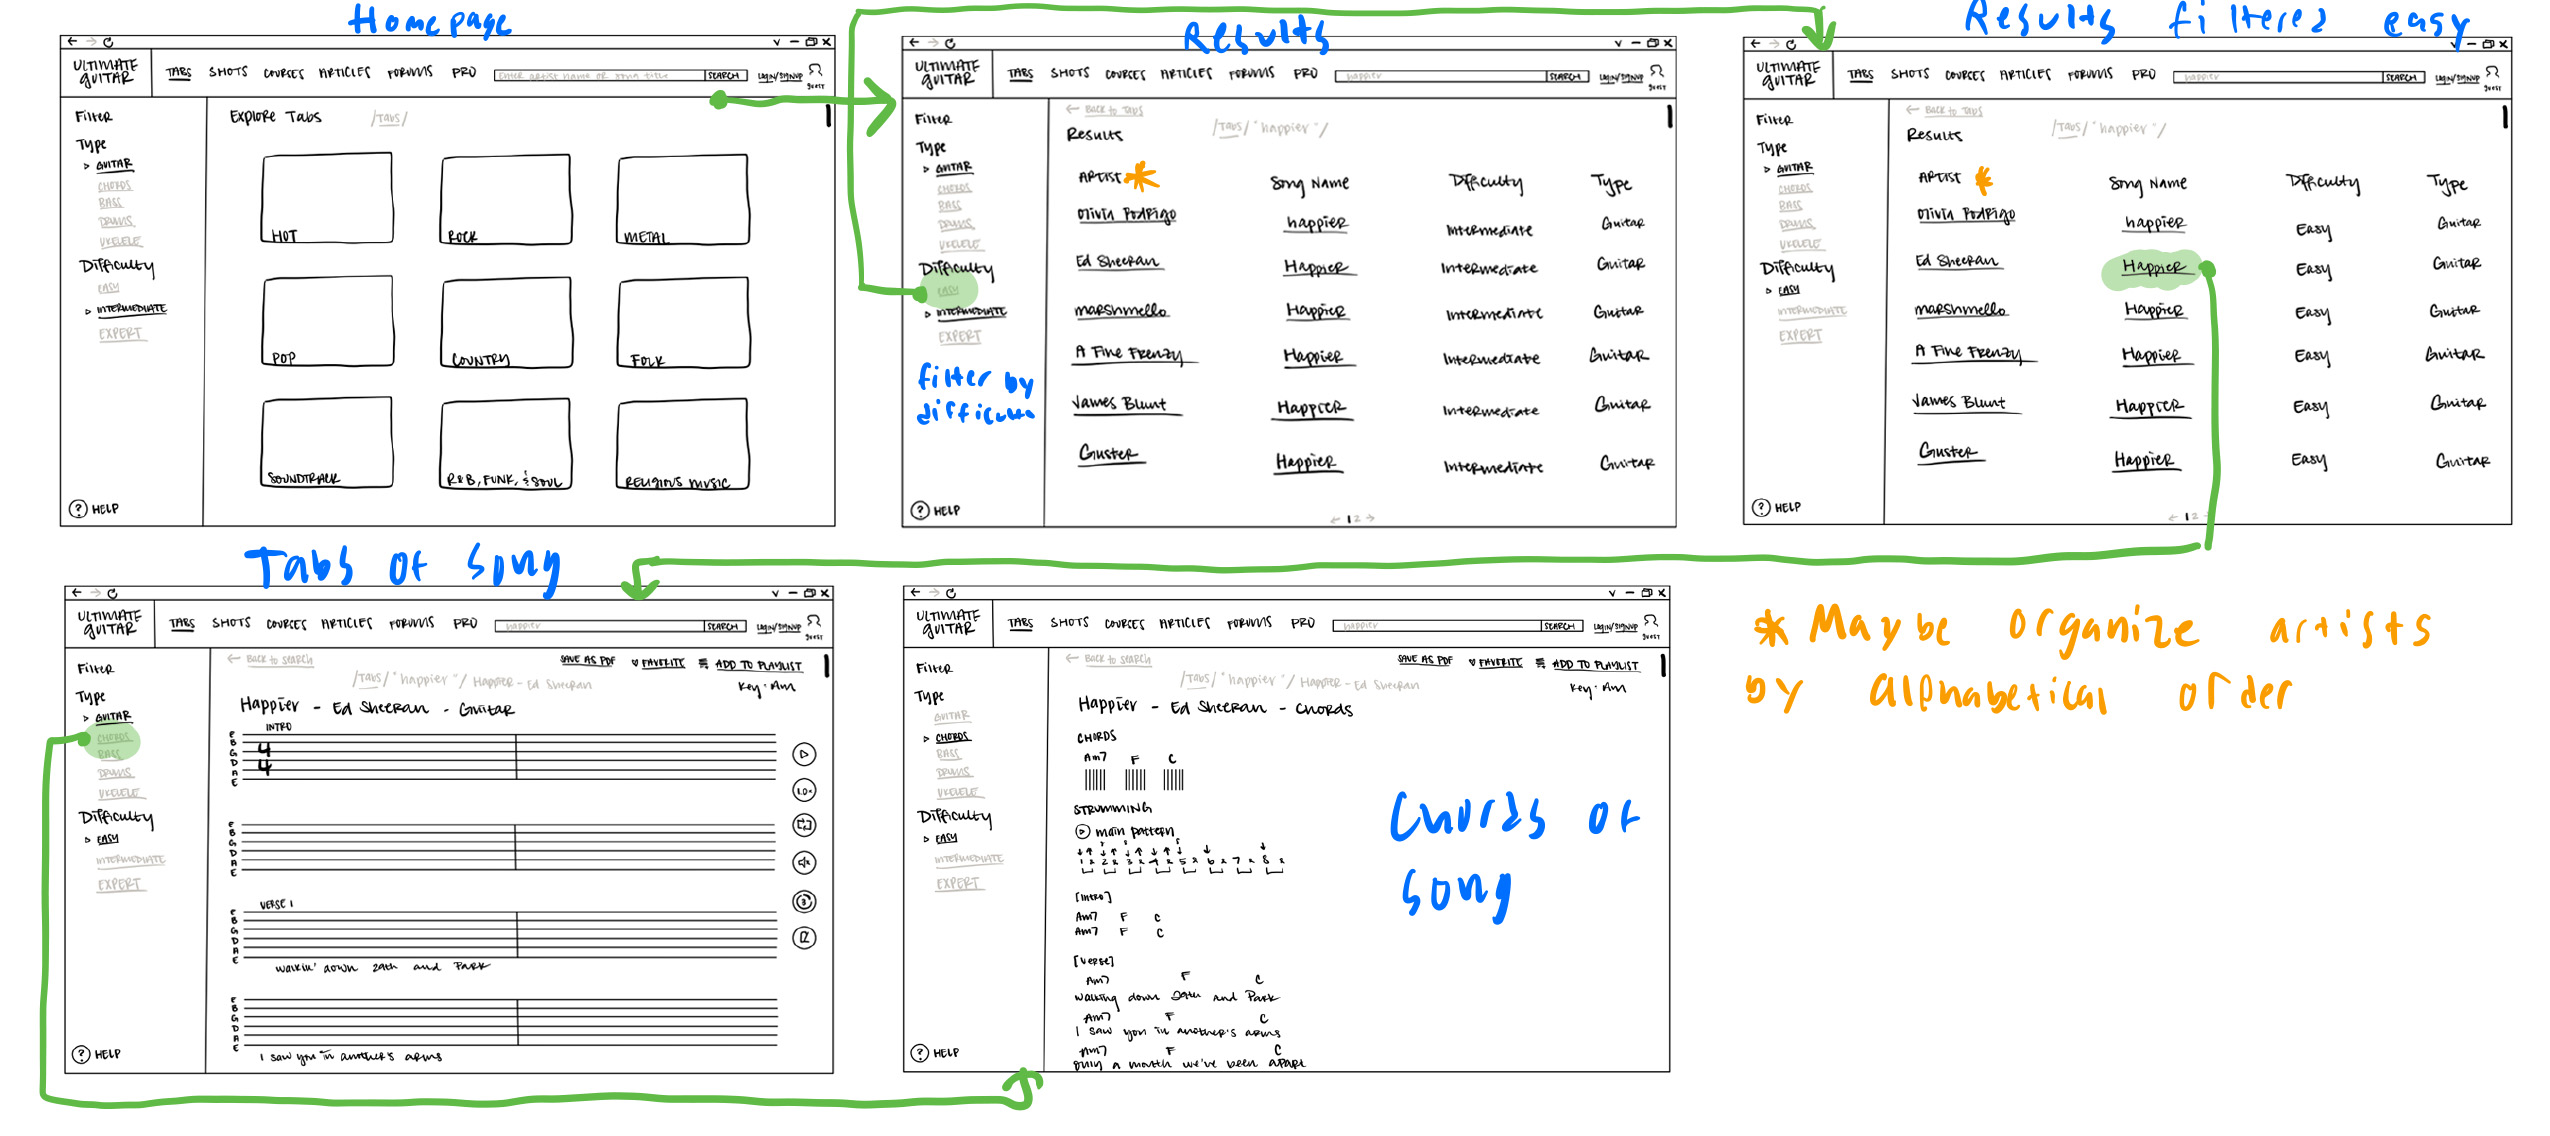 Homepage
ULTIMATE GUITAR
TABS SHOTS COURSES ARTICLES FORUMS PRO
Enter artist name or song title SEARCH LOGIN/SIGNUP guest
Filter
Type
GUITAR
CHORDS
BASS
DRUMS
UKELELE
Difficulty
EASY
INTERMEDIATE
EXPERT
? HELP
Explore Tabs /Tabs/
HOT ROCK METAL
POP COUNTRY FOLK
SOUNDTRACK R&B, FUNK, & SOUL RELIGIOUS MUSIC
Results
ULTIMATE GUITAR
TABS SHOTS COURSES ARTICLES FORUMS PRO
happier SEARCH LOGIN/SIGNUP guest
Filter
Type
GUITAR
CHORDS
BASS
DRUMS
UKELELE
Difficulty
EASY
INTERMEDIATE
EXPERT
filter by
? HELP
← BACK TO TABS
/Tabs/ "happier"/
Results
ARTIST * Song Name Difficulty Type
Olivia Rodrigo happier Intermediate Guitar
Ed Sheeran Happier Intermediate Guitar
marshmello Happier Intermediate Guitar
A Fine Frenzy Happier Intermediate Guitar
James Blunt Happier Intermediate Guitar
Guster Happier Intermediate Guitar
← 1 2 →
Results filtered easy
ULTIMATE GUITAR
TABS SHOTS COURSES ARTICLES FORUMS PRO
happier SEARCH LOGIN/SIGNUP guest
Filter
Type
GUITAR
CHORDS
BASS
DRUMS
UKELELE
Difficulty
EASY
INTERMEDIATE
EXPERT
? HELP
← BACK TO TABS
/Tabs/ "happier"/
Results
ARTIST * Song Name Difficulty Type
Olivia Rodrigo happier Easy Guitar
Ed Sheeran Happier Easy Guitar
marshmello Happier Easy Guitar
A Fine Frenzy Happier Easy Guitar
James Blunt Happier Easy Guitar
Guster Happier Easy Guitar
← 1 2
Tabs of song
ULTIMATE GUITAR
TABS SHOTS COURSES ARTICLES FORUMS PRO
happier SEARCH LOGIN/SIGNUP guest
Filter
Type
GUITAR
CHORDS
BASS
DRUMS
UKELELE
Difficulty
EASY
INTERMEDIATE
EXPERT
? HELP
← BACK TO SEARCH SAVE AS PDF FAVORITE ADD TO PLAYLIST
/Tabs/ "happier"/ Happier - Ed Sheeran
Key: Am
Happier - Ed Sheeran - Guitar
INTRO
E
B
G 4
D 4
A
E
1.0x
E
B
G
D
A
E
VERSE 1
E
B
G
D
A
E
walkin' down 29th and Park
E
B
G
D
A
E
I saw you in another's arms
ULTIMATE GUITAR
TABS SHOTS COURSES ARTICLES FORUMS PRO
happier SEARCH LOGIN/SIGNUP guest
Filter
Type
GUITAR
CHORDS
BASS
DRUMS
UKELELE
Difficulty
EASY
INTERMEDIATE
EXPERT
? HELP
← BACK TO SEARCH SAVE AS PDF FAVORITE ADD TO PLAYLIST
/Tabs/ "happier"/ Happier - Ed Sheeran
Key: Am
Happier - Ed Sheeran - Chords
CHORDS
Am7 F C
STRUMMING
main pattern
1 & 2 & 3 & 4 & 5 & 6 & 7 & 8 &
[Intro]
Am7 F C
Am7 F C
[Verse]
Am7 F C
Walking down 29th and Park
Am7 F C
I saw you in another's arms
Am7 F C
Only a month we've been apart
Chords of
song
* Maybe organize artists
by alphabetical order